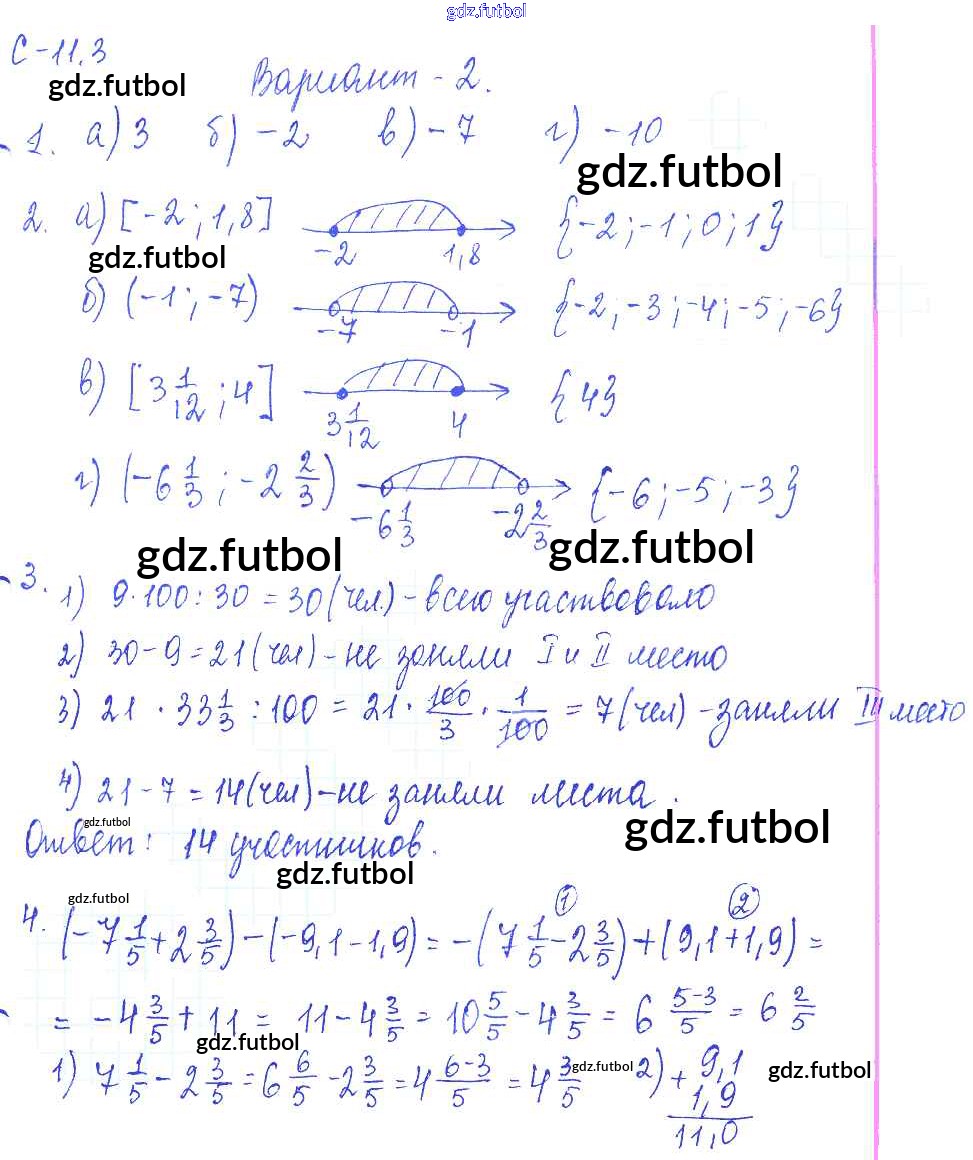 gdz.futbol
С-11.3
gdz.futbol
Вариант - 2.
1. а) 3 б) -2 в) -7 г) -10
gdz.futbol
2. а) [-2 ; 1,8] -2 1,8 {-2 ; -1 ; 0 ; 1}
gdz.futbol
б) (-1 ; -7) -7 -1 {-2 ; -3 ; -4 ; -5 ; -6}
в) [3 1/12 ; 4] 3 1/12 4 {4}
г) (-6 1/3 ; -2 2/3) -6 1/3 -2 2/3 {-6 ; -5 ; -3}
gdz.futbol gdz.futbol
3. 1) 9·100 : 30 = 30 (чел.) - всего участвовало
2) 30 - 9 = 21 (чел) - не заняли I и II место
3) 21 · 33 1/3 : 100 = 21 · 100/3 · 1/100 = 7 (чел) - заняли III место
4) 21 - 7 = 14 (чел) - не заняли места.
gdz.futbol
Ответ: 14 участников.
gdz.futbol
gdz.futbol
gdz.futbol
① ②
4. (-7 1/5 + 2 3/5) - (-9,1 - 1,9) = -(7 1/5 - 2 3/5) + (9,1 + 1,9) =
= -4 3/5 + 11 = 11 - 4 3/5 = 10 5/5 - 4 3/5 = 6 5-3/5 = 6 2/5
gdz.futbol
1) 7 1/5 - 2 3/5 = 6 6/5 - 2 3/5 = 4 6-3/5 = 4 3/5 2) + 9,1
gdz.futbol gdz.futbol
1,9
11,0